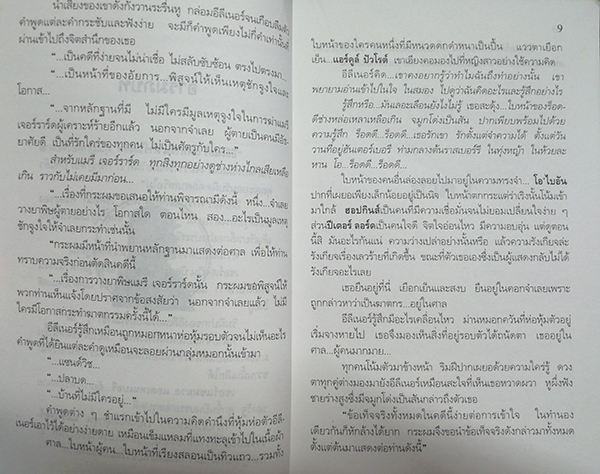 น้ำเสียงของเขาดังกังวานระรื่นหู กล่อมอีลีเนอร์จนเกือบลืมตัว
คำพูดแต่ละคำกระชับและฟังง่าย จะมีก็คำพูดเพียงไม่กี่คำเท่านั้นที่
ผ่านเข้าไปถึงจิตสำนึกของเธอ
"...เป็นคดีที่ง่ายจนไม่น่าเชื่อ ไม่สลับซับซ้อน ตรงไปตรงมา...
"...เป็นหน้าที่ของอัยการ...พิสูจน์ให้เห็นมูลเหตุชักจูงใจและ
โอกาส...
"...จากหลักฐานที่มี ไม่มีใครมีมูลเหตุจูงใจในการฆ่าแมรี่
เจอร์ราร์ดผู้เคราะห์ร้ายอีกแล้ว นอกจากจำเลย ผู้ตายเป็นคนมี
ยาศัยดี เป็นที่รักใคร่ของทุกคน ไม่เป็นศัตรูกับใคร..."
สำหรับแมรี่ เจอร์ราร์ด ทุกสิ่งทุกอย่างดูช่างห่างไกลเสียเหลือ
เกิน ราวกับไม่เคยมีมาก่อน...
"...เรื่องที่กระผมขอเสนอให้ท่านพิจารณามีดังนี้ หนึ่ง...จำเลย
วางยาพิษผู้ตายอย่างไร โอกาสใด ตอนไหน สอง...อะไรเป็นมูลเหตุ
ชักจูงใจให้จำเลยกระทำเช่นนั้น
"กระผมมีหน้าที่นำพยานหลักฐานมาแสดงต่อศาล เพื่อให้ท่าน
ทราบความจริงก่อนตัดสินคดีนี้
"...เรื่องการวางยาพิษแมรี่ เจอร์ราร์ดนั้น กระผมขอพิสูจน์ให้
พวกท่านเห็นแจ้งโดยปราศจากข้อสงสัยว่า นอกจากจำเลยแล้ว ไม่มี
ใครมีโอกาสกระทำฆาตกรรมครั้งนี้ได้..."
อีลีเนอร์รู้สึกเหมือนถูกหมอกหนาห่อหุ้มรอบตัวจนไม่เห็นอะไร
คำพูดที่ได้ยินแต่ละคำดูเหมือนจะลอยผ่านกลุ่มหมอกนั้นเข้ามา
"...แซนด์วิช...
"...ปลาบด...
"...บ้านที่ไม่มีใครอยู่..."
คำพูดต่าง ๆ ชำแรกเข้าไปในความคิดคำนึงที่หุ้มห่อตัวอีลี-
เนอร์เอาไว้ได้อย่างง่ายดาย เหมือนเข็มแหลมที่แทงทะลุเข้าไปในเนื้อผ้า
ศาล...ใบหน้าผู้คน...ใบหน้าที่เรียงสลอนเป็นทิวแถว...รวมทั้ง
9
ใบหน้าของใครคนหนึ่งที่มีหนวดดกดำหนาเป็นปื้น แววตาเยือก
เย็น...แอร์คูล ปัวโรต์ เขาเอียงคอมองไปที่หญิงสาวอย่างใช้ความคิด
อีลีเนอร์คิด...เขาคงอยากรู้ว่าทำไมฉันถึงทำอย่างนั้น เขา
พยายามอ่านเข้าไปในใจ ในสมอง ไปดูว่าฉันคิดอะไรและรู้สึกอย่างไร
รู้สึกหรือ...มันเลอะเลือนยังไงไม่รู้ เธอสะดุ้ง...ใบหน้าของร็อด-
ดีช่างหล่อเหลาเหลือเกิน จมูกโด่งเป็นสัน ปากเพียบพร้อมไปด้วย
ความรู้สึก ร็อดดี...ร็อดดี...เธอรักเขา รักตั้งแต่จำความได้ ตั้งแต่วัน
วานที่อยู่ฮันเตอร์เบอรี ท่ามกลางต้นราสเบอร์รี ในทุ่งหญ้า ในห้วยละ
หาน โอ...ร็อดดี...ร็อดดี...
ใบหน้าของคนอื่นล่องลอยไปมาอยู่ในความทรงจำ... โอ'ไบอัน
ปากที่เผยอเพียงเล็กน้อยอยู่เป็นนิจ ใบหน้าตกกระแต่ร่าเริงนั้นโน้มเข้า
มาใกล้ ฮอปกินส์เป็นคนที่มีความเชื่อมั่นจนไม่ยอมเปลี่ยนใจง่าย ๆ
ส่วนปีเตอร์ ลอร์ดเป็นคนใจดี จิตใจอ่อนไหว มีความอบอุ่น แต่ดูตอน
นี้สิ มันอะไรกันแน่ ความว่างเปล่าอย่างนั้นหรือ แล้วความรังเกียจล่ะ
รังเกียจเรื่องเลวร้ายที่เกิดขึ้น ขณะที่ตัวเธอเองซึ่งเป็นผู้แสดงกลับไม่ได้
รังเกียจอะไรเลย
เธอยืนอยู่ที่นี่ เยือกเย็นและสงบ ยืนอยู่ในคอกจำเลยเพราะ
ถูกกล่าวหาว่าเป็นฆาตกร...อยู่ในศาล
อีลีเนอร์รู้สึกมีอะไรเคลื่อนไหว ม่านหมอกควันที่ห่อหุ้มตัวอยู่
เริ่มจางหายไป เธอจึงมองเห็นสิ่งที่อยู่รอบตัวได้ถนัดตา เธออยู่ใน
ศาล...ผู้คนมากมาย...
ทุกคนโน้มตัวมาข้างหน้า ริมฝีปากเผยอด้วยความใคร่รู้ ดวง
ตาทุกคู่ต่างมองมายังอีลีเนอร์เหมือนสะใจที่เห็นเธอหวาดผวา หูผึ่งฟัง
ชายร่างสูงซึ่งมีจมูกโด่งเป็นสันกล่าวถึงตัวเธอ
"ข้อเท็จจริงทั้งหมดในคดีนี้ง่ายต่อการเข้าใจ ในทำนอง
เดียวกันก็หักล้างได้ยาก กระผมจึงขอนำข้อเท็จจริงดังกล่าวมาทั้งหมด
ตั้งแต่ต้นมาแสดงต่อท่านดังนี้"